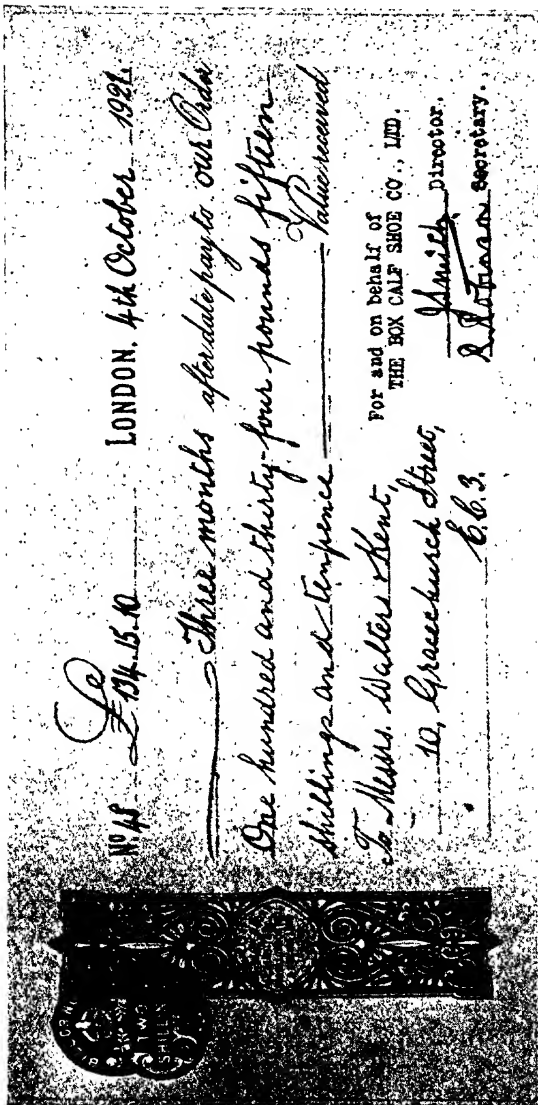 Nº 48 £134.15.10 LONDON, 4th October 1921.
Three months after date pay to our Order
One hundred and thirty-four pounds fifteen
shillings and tenpence Value received
To Messrs. Walters & Kent,
10, Gracechurch Street,
E.C.3.
For and on behalf of
THE BOX CALF SHOE CO., LTD.
J Smith Director.
R Robinson Secretary.
TWO